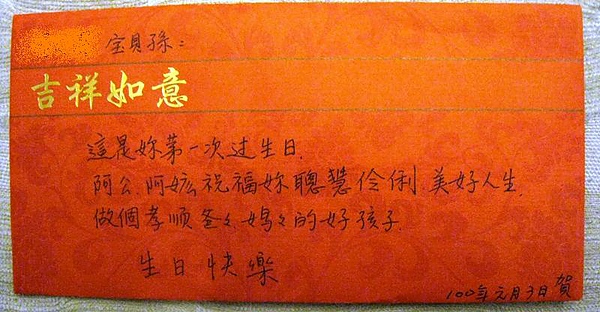 宝貝孫：
吉祥如意
這是妳第一次过生日.
阿公.阿嬤祝福妳聰慧伶俐.美好人生.
做個孝順爸々媽々的好孩子.
生日快樂
100年元月3日賀